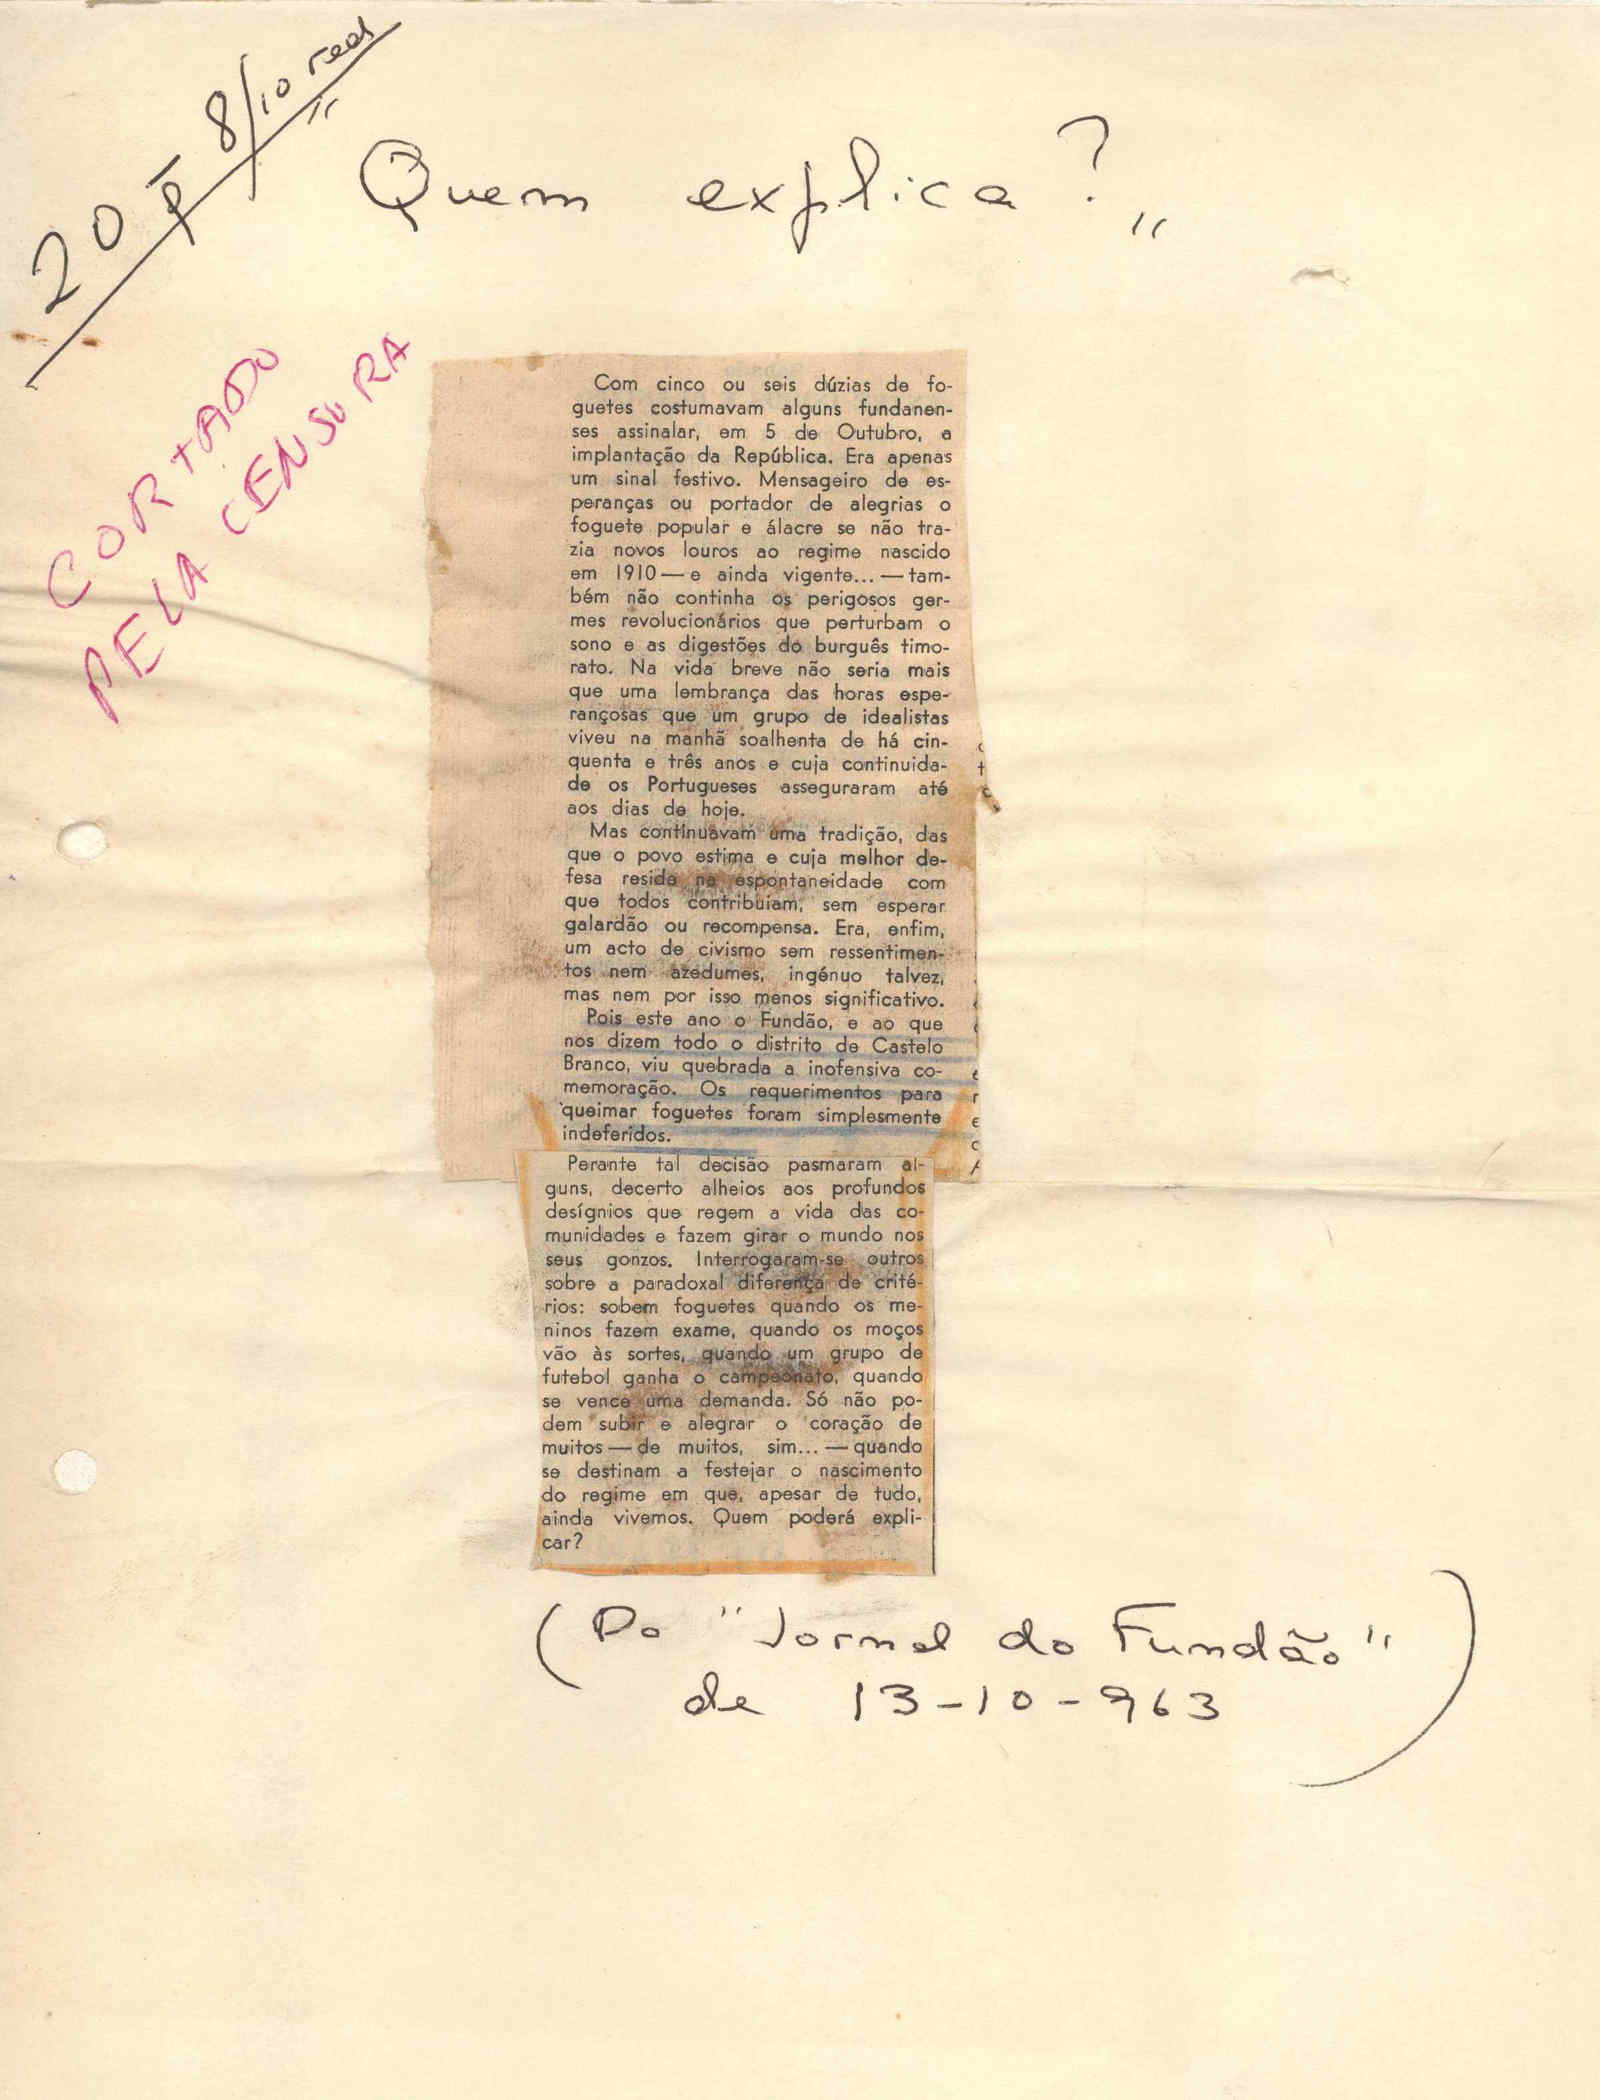 20 8/10
"Quem explica?"
CORTADO
PELA CENSURA
Com cinco ou seis dúzias de fo-
guetes costumavam alguns fundanen-
ses assinalar, em 5 de Outubro, a
implantação da República. Era apenas
um sinal festivo. Mensageiro de es-
peranças ou portador de alegrias o
foguete popular e álacre se não tra-
zia novos louros ao regime nascido
em 1910 — e ainda vigente... — tam-
bém não continha os perigosos ger-
mes revolucionários que perturbam o
sono e as digestões do burguês timo-
rato. Na vida breve não seria mais
que uma lembrança das horas espe-
rançosas que um grupo de idealistas
viveu na manhã soalhenta de há cin-
quenta e três anos e cuja continuida-
de os Portugueses asseguraram até
aos dias de hoje.
Mas continuavam uma tradição, das
que o povo estima e cuja melhor de-
fesa reside na espontaneidade com
que todos contribuiam, sem esperar
galardão ou recompensa. Era, enfim,
um acto de civismo sem ressentimen-
tos nem azedumes, ingénuo talvez,
mas nem por isso menos significativo.
Pois este ano o Fundão, e ao que
nos dizem todo o distrito de Castelo
Branco, viu quebrada a inofensiva co-
memoração. Os requerimentos para
queimar foguetes foram simplesmente
indeferidos.
Perante tal decisão pasmaram al-
guns, decerto alheios aos profundos
desígnios que regem a vida das co-
munidades e fazem girar o mundo nos
seus gonzos. Interrogaram-se outros
sobre a paradoxal diferença de crité-
rios: sobem foguetes quando os me-
ninos fazem exame, quando os moços
vão às sortes, quando um grupo de
futebol ganha o campeonato, quando
se vence uma demanda. Só não po-
dem subir e alegrar o coração de
muitos — de muitos, sim... — quando
se destinam a festejar o nascimento
do regime em que, apesar de tudo,
ainda vivemos. Quem poderá expli-
car?
(Do "Jornal do Fundão"
de 13-10-963)